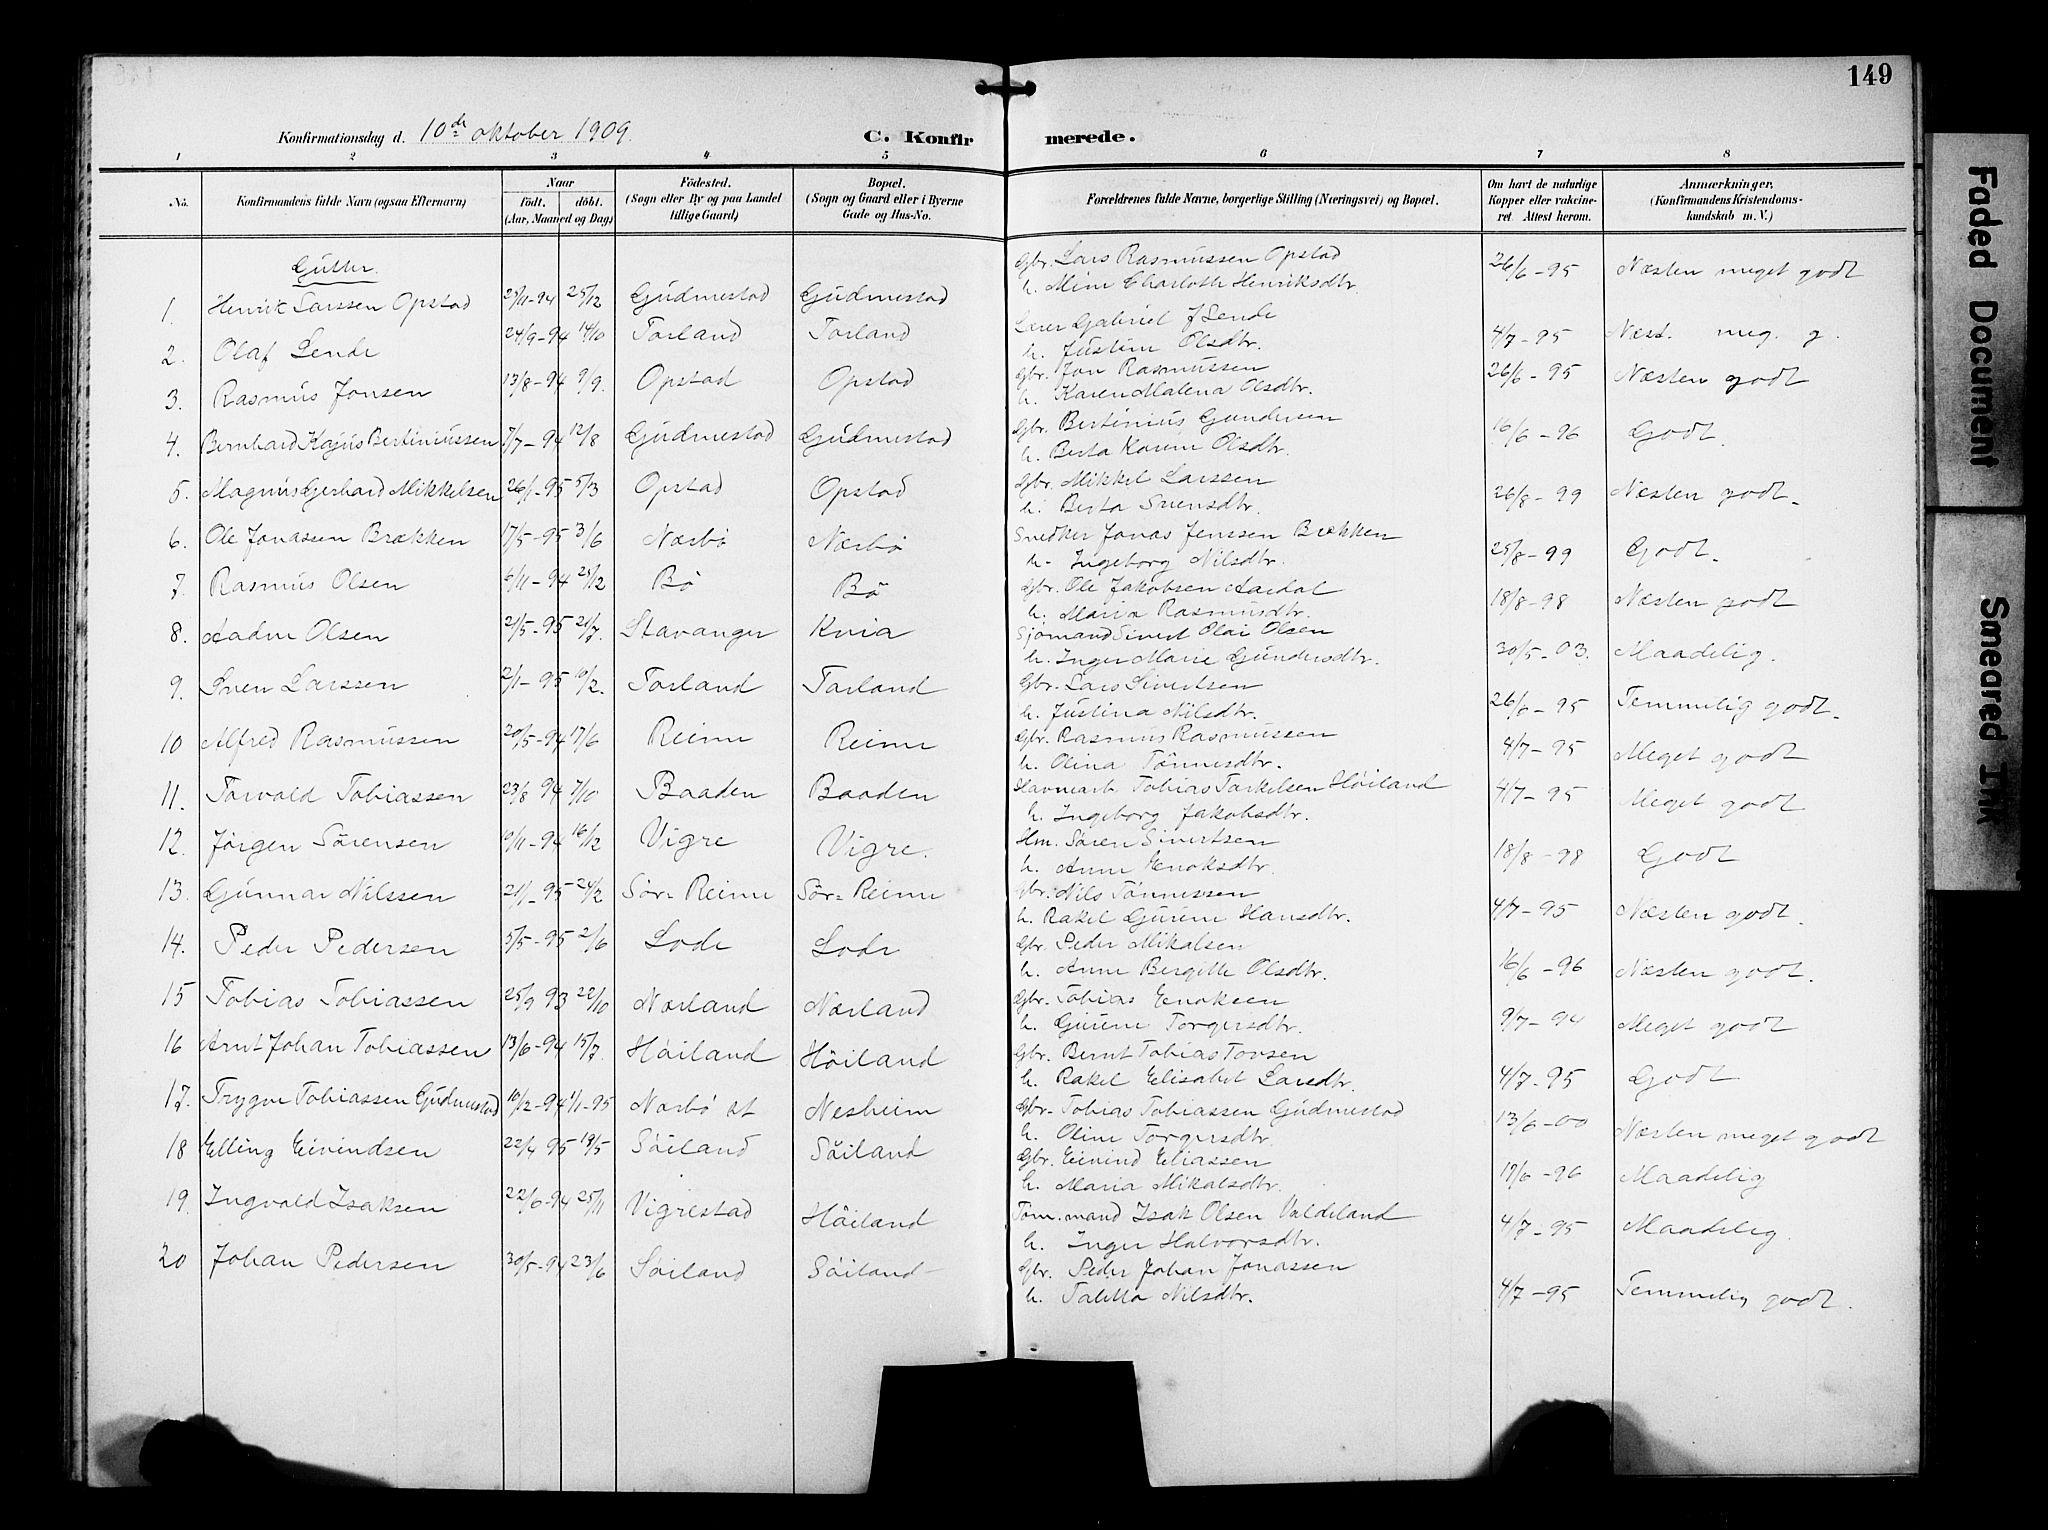 149
Konfirmationsdag d. 10de oktober 1909.
C. Konfirmerede.
1 2 3 4 5 6 7 8
No. Konfirmandens fulde Navn (ogsaa Efternavn) Naar Födt. döbt. (Aar, Maaned og Dag) Födested. (Sogn eller By og paa Landet tillige Gaard) Bopæl. (Sogn og Gaard eller i Byerne Gade og Hus-No. Forældrenes fulde Navne, borgerlige Stilling (Næringsvei) og Bopæl. Om havt de naturlige Kopper eller vakcineret. Attest herom. Anmærkninger, (Konfirmandens Kristendomskundskab m. V.)
Gutter.
1. Henrik Larssen Opstad 25/11-94 25/12 Gudmestad Gudmestad Gbr. Lars Rasmussen Opstad 26/6-95 Næsten meget godt
h. Mine Charlotte Henriksdtr.
2. Olaf Lende 24/9-94 14/10 Torland Torland Lærer Gabriel J Lende 4/7-95 Næst. meg. g.
h. Justine Olsdtr.
3. Rasmus Jonsen 13/8-94 9/9. Opstad Opstad Gbr. Jon Rasmussen 26/6-95 Næsten godt
h. Karen Malena Olsdtr.
4. Bernhard Kajus Bertiniussen 7/7-94 12/8 Gudmestad Gudmestad Gbr. Bertinius Gundersen 16/6-96 Godt.
h. Berta Karine Olsdtr.
5. Magnus Gerhard Mikkelsen 26/1-95 5/3 Opstad Opstad Gbr. Mikkel Larssen 26/8-99 Næsten godt.
h. Berta Svensdtr.
6. Ole Jonassen Brækken 17/5-95 3/6 Nærbö Nærbö Snedker Jonas Jenssen Brækken 25/8-99 Godt.
h. Ingeborg Nilsdtr.
7. Rasmus Olsen 6/11-94 25/12 Bö Bö Gbr. Ole Jakobsen Aardal 18/8-98 Næsten godt
h. Maria Rasmusdtr.
8. Aadne Olsen 21/5-95 21/7. Stavanger Kvia Sjömand Sivert Olai Olsen 30/5-03. Maadelig.
h. Inger Marie Gundersdtr.
9. Sven Larssen 2/1-95 10/2. Torland Torland Gbr. Lars Sivertsen 26/6-95 Temmelig godt.
h. Justina Nilsdtr.
10 Alfred Rasmussen 20/5-94 17/6 Reime Reime Gbr. Rasmus Rasmussen 4/7-95 Meget godt
h. Olina Tönnesdtr.
11. Torvald Tobiassen 23/8 94 7/10 Baaden Baaden Havnearb. Tobias Torkelsen Höiland 4/7-95 Meget godt
h. Ingeborg Jakobsdtr.
12. Jörgen Sörensen 19/11-94 16/12 Vigre Vigre. Hm. Sören Sivertsen 18/8-98 Godt
h. Anne Enoksdtr.
13. Gunnar Nilssen 21/1-95 24/2 Sör-Reime Sör-Reime Gbr. Nils Tönnessen 4/7-95 Næsten godt
h. Rakel Gurine Hansdtr.
14. Peder Pedersen 5/5-95 2/6 Lode Lode Gbr. Peder Mikalsen 16/6-96 Næsten godt.
h. Anne Bergitte Olsdtr.
15 Tobias Tobiassen 25/9 93 22/10 Nærland Nærland Gbr. Tobias Enoksen 9/7-94 Meget godt
h. Gurine Torgersdtr.
16 Arnt Johan Tobiassen 13/6-94 15/7. Höiland Höiland Gbr. Bernt Tobias Tovsen 4/7-95 Godt
h. Rakel Elisabet Larsdtr.
17. Trygve Tobiassen Gudmestad 10/12-94 1/1-95 Nærbö st Nesheim Gbr. Tobias Tobiassen Gudmestad 13/6-00 Næsten meget godt
h. Oline Torgersdtr.
18 Elling Eivindsen 22/4 95 19/5 Söiland Söiland Gbr. Eivind Eliassen 17/6-96 Maadelig
h. Maria Mikalsdtr.
19. Ingvald Isaksen 22/6-94 25/11 Vigrestad Höiland Töm.mand Isak Olsen Valdeland 4/7-95 Maadelig.
h. Inger Halvorsdtr.
20 Johan Pedersen 30/5-94 23/6 Söiland Söiland Gbr. Peder Johan Jonassen 4/7-95 Temmelig godt.
h. Taletta Nilsdtr.
Faded Document
Smeared Ink